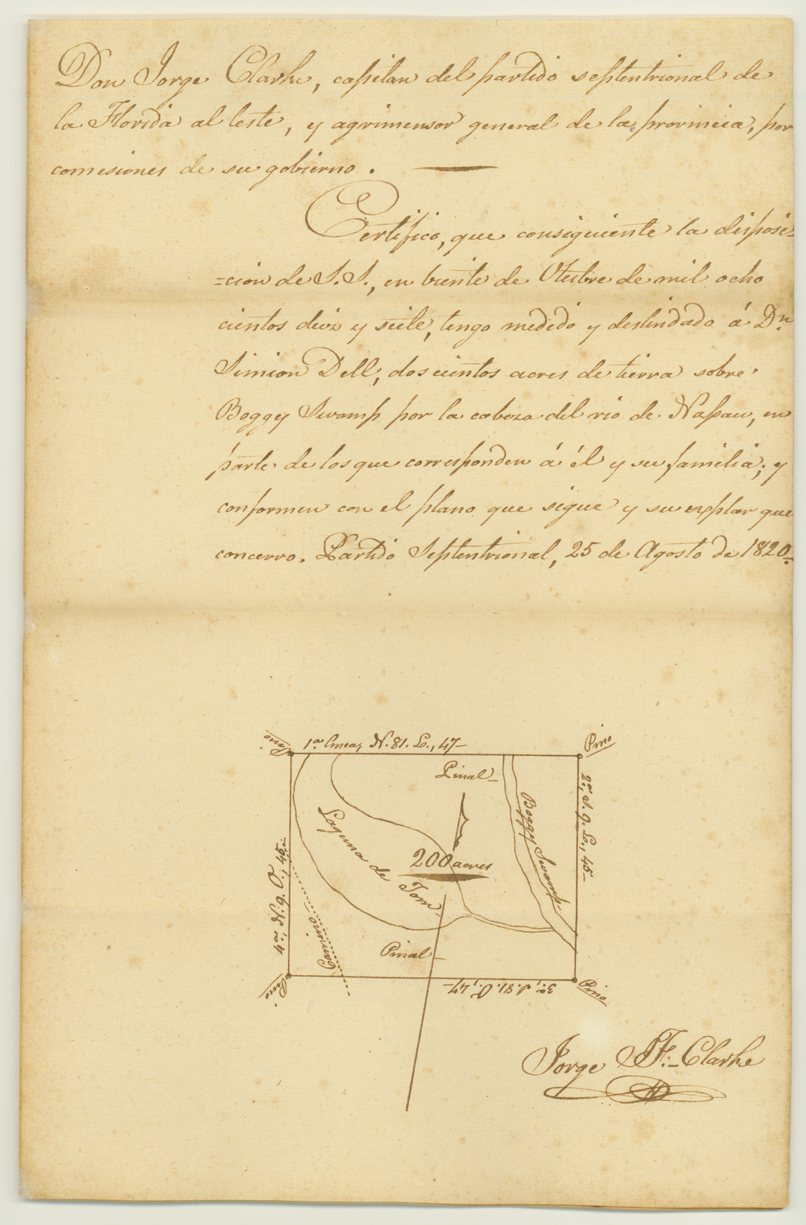 Don Jorge Clarke, capitan del partido septentrional de
la Florida al leste, y agrimensor general de la provincia, por
comisiones de su gobierno.
Certifico, que consiguiente la disposi=
=cion de S.S., en biente de Otubre de mil ocho
cientos diez y siete, tengo medido y deslindado á Dn
Simion Dell, dos cientos acres de tierra sobre
Boggy Swamp por la cabeza del rio de Nasau, en
parte de los que corresponden á él y su familia; y
conformen con el plano que sigue y su explar que
concerro. Partido Septentrional, 25 de Agosto de 1820.
Pino
1ra linea, N.81.L., 47-
Pino
Pinal-
2a, S.9.L., 45-
Boggy Swamp
Laguna de Tom
200 acres
4a, N.9.O., 45-
Camino
Pinal-
Pino
3a, S.81.O., 47-
Pino
Jorge J. F. Clarke